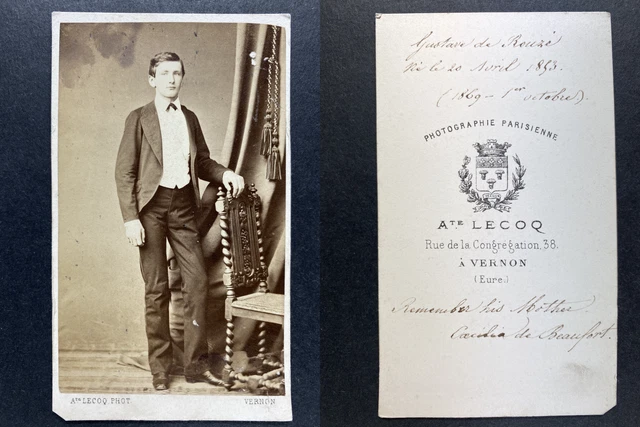 Ate LECOQ PHOT.
VERNON
Gustave de Rouzé
Né le 20 Avril 1853.
(1869 - 1er octobre).
PHOTOGRAPHIE PARISIENNE
ATE LECOQ
Rue de la Congrégation, 38.
À VERNON
(Eure.)
Remember his Mother
Cæcilia de Beaufort.